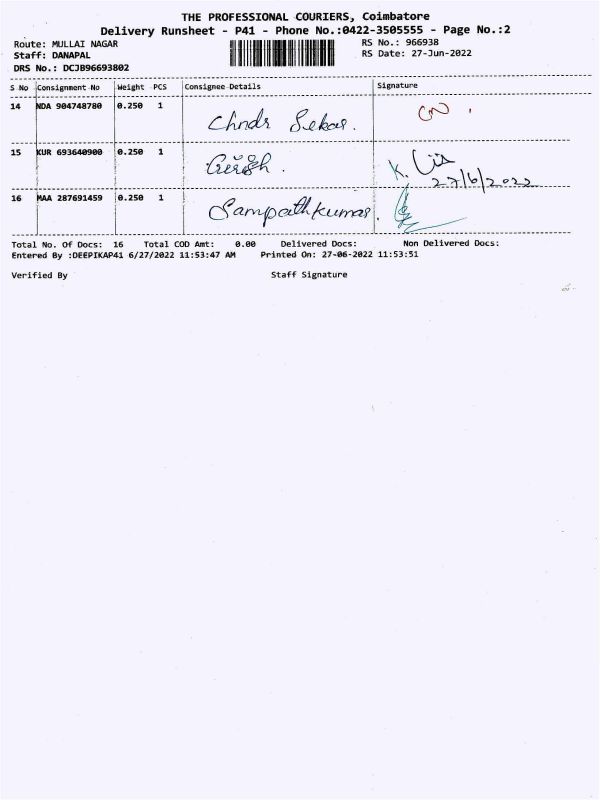 THE PROFESSIONAL COURIERS, Coimbatore
Delivery Runsheet - P41 - Phone No.:0422-3505555 - Page No.:2
Route: MULLAI NAGAR RS No.: 966938
Staff: DANAPAL RS Date: 27-Jun-2022
DRS No.: DCJB96693802
S No Consignment No Weight PCS Consignee Details Signature
14 NDA 904748780 0.250 1 Chndr Sekar.
15 KUR 693640900 0.250 1 K.
27/6/2022
16 MAA 287691459 0.250 1 Sampathkumar.
Total No. Of Docs: 16 Total COD Amt: 0.00 Delivered Docs: Non Delivered Docs:
Entered By :DEEPIKAP41 6/27/2022 11:53:47 AM Printed On: 27-06-2022 11:53:51
Verified By Staff Signature